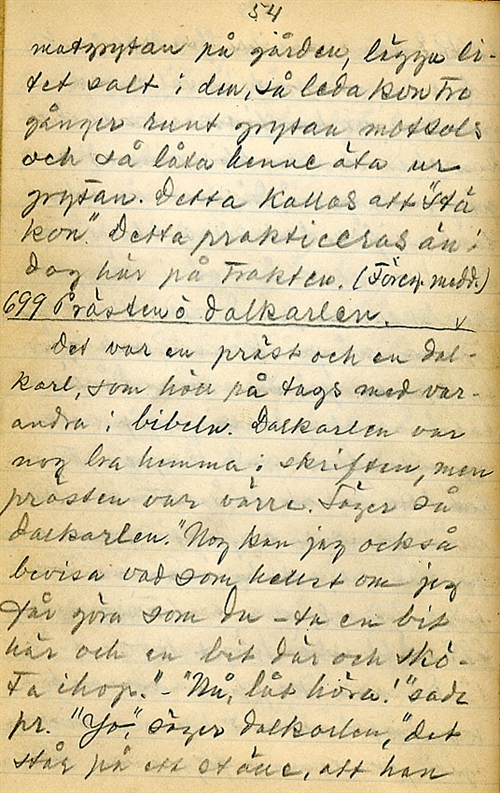 54
matgrytan på gården, lägga li-
tet salt i den, så leda kon tre
gånger runt grytan motsols
och så låta henne äta ur
grytan. Detta kallas att "stå
kon". Detta prakticeras än i
dag här på trakten. (Föreg. medd.)
699 Prästen o dalkarlen.
Det var en präst och en dal-
karl, som höll på tags med var-
andra i bibeln. Dalkarlen var
nog bra hemma i skriften, men
prästen var värre. Säger så
dalkarlen. "Nog kan jag också
bevisa vad som helst om jag
får göra som du – ta en bit
här och en bit där och skö-
ta ihop." – "Nå, låt höra!" sade
pr. "Jo", säger dalkarlen, "det
står på ett ställe, att han